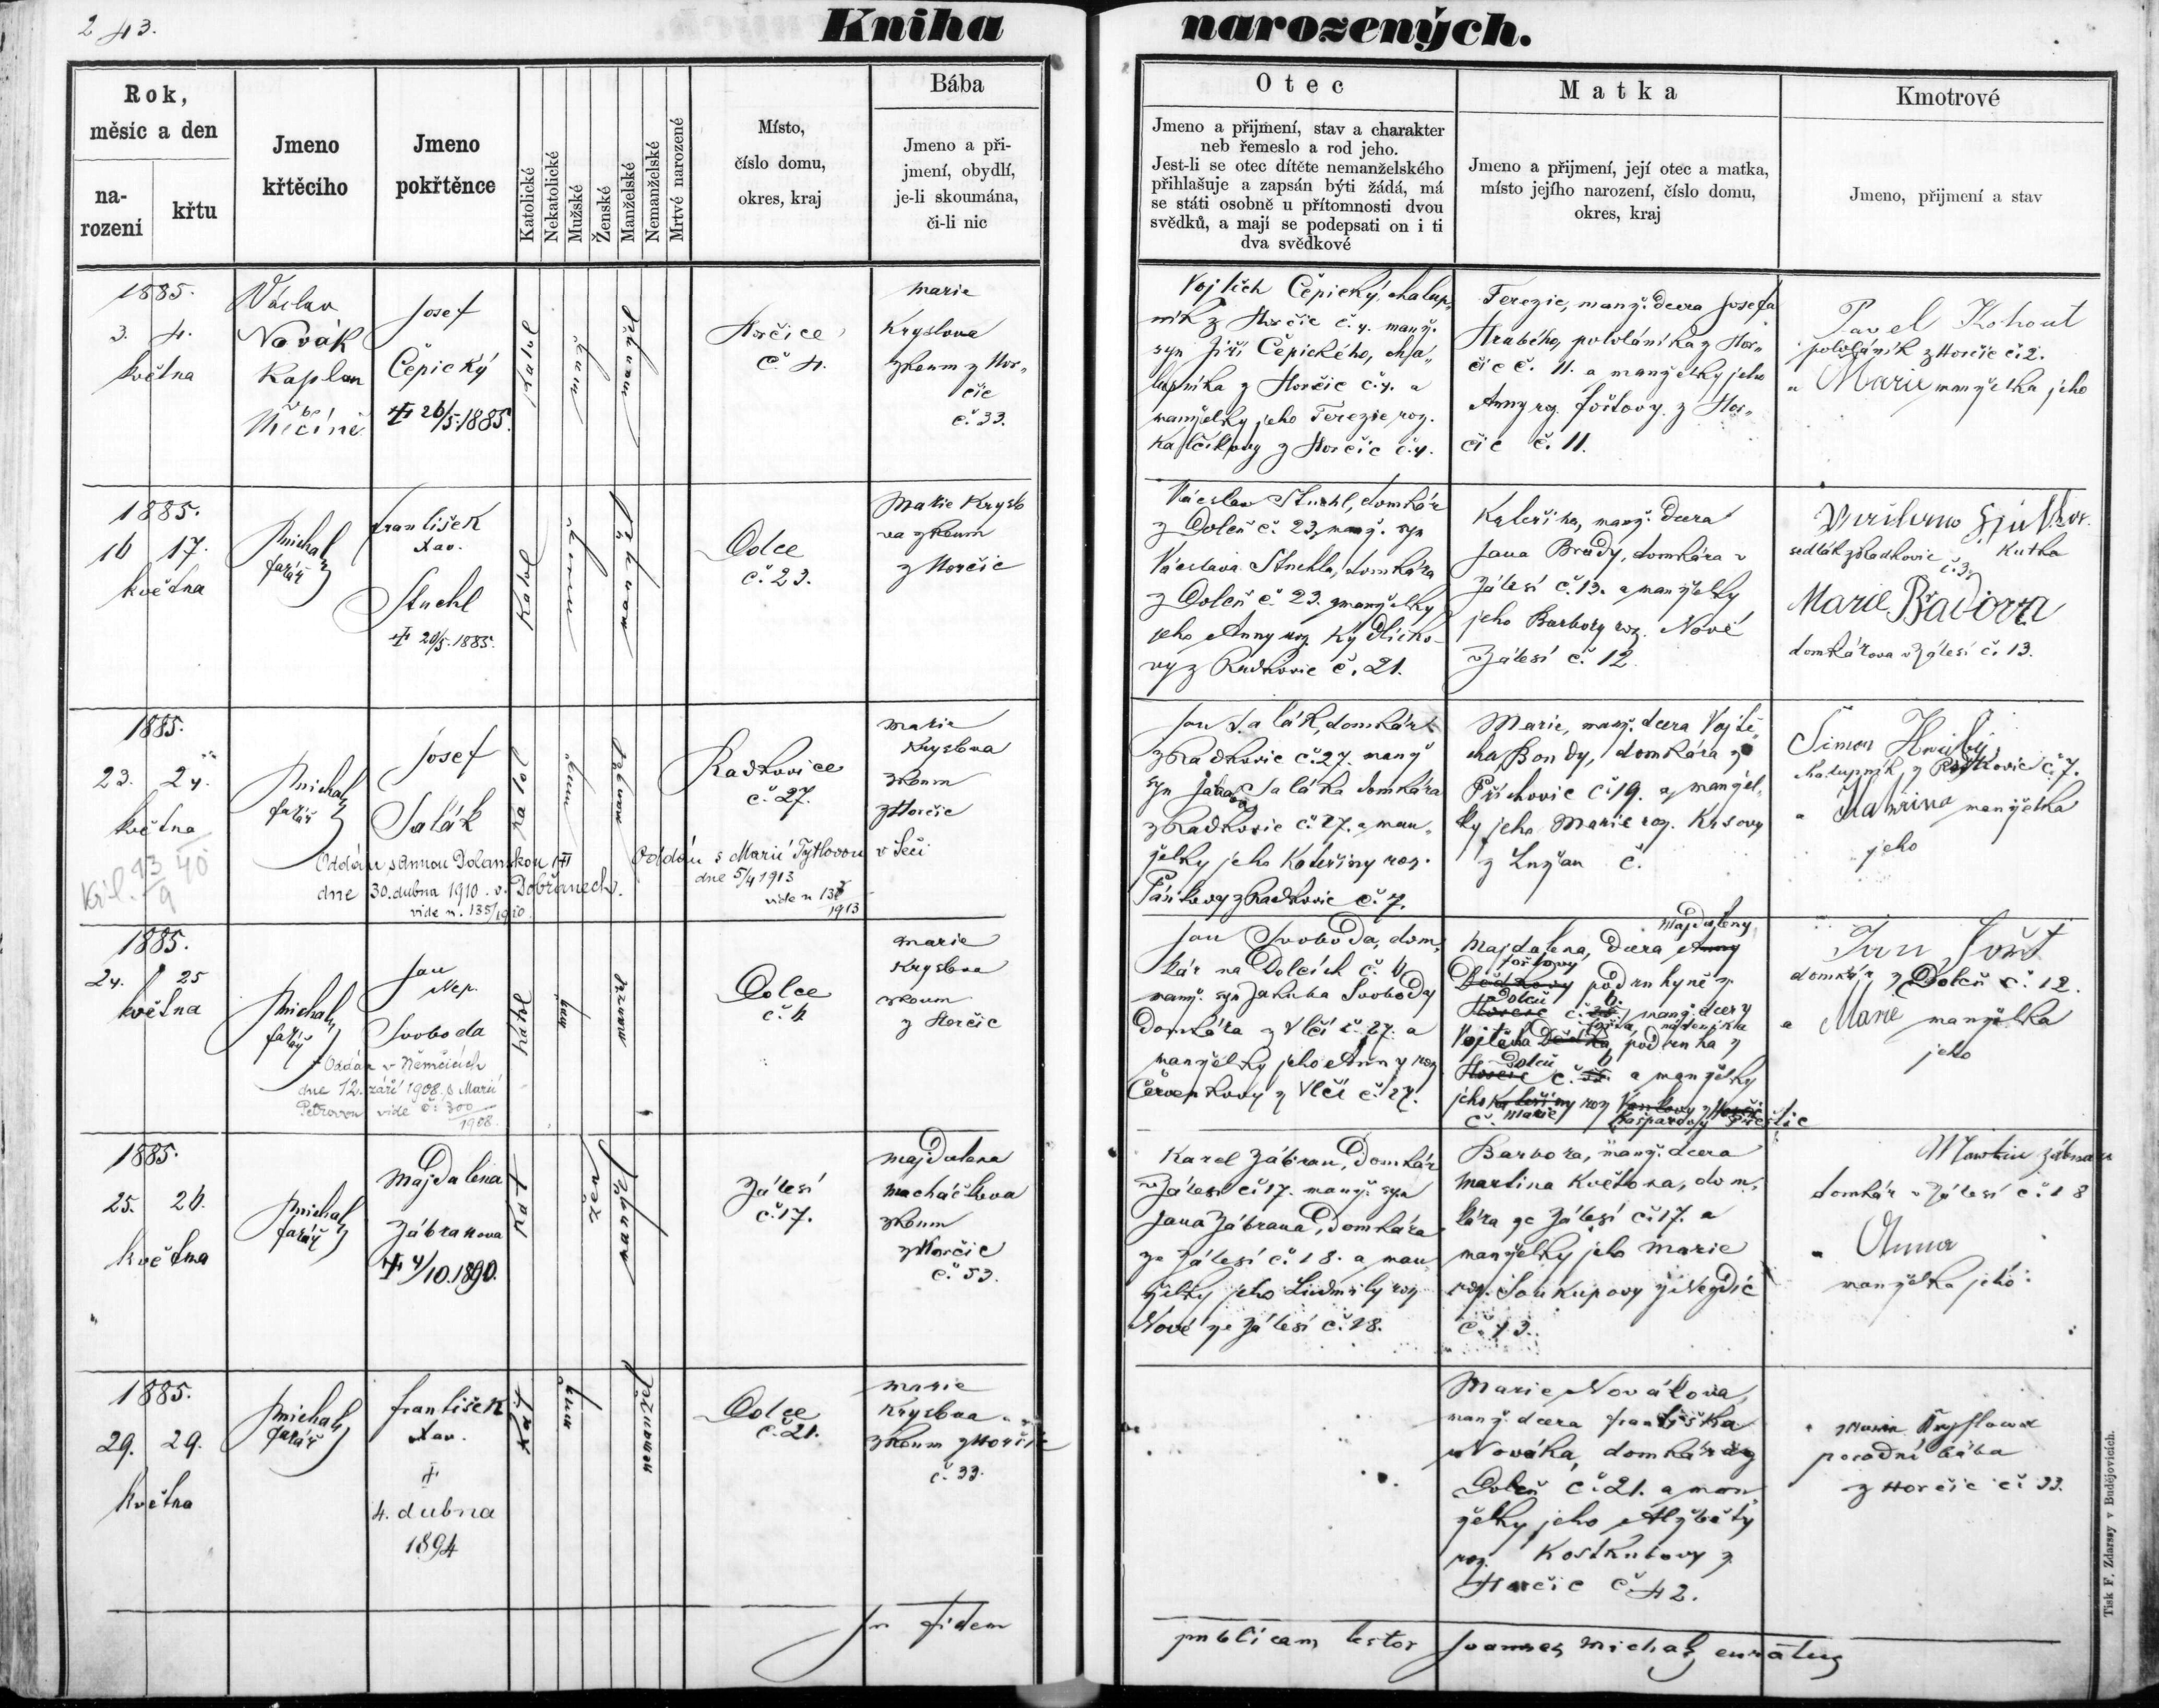 243.
Kniha narozených.
Rok,
měsíc a den
na-
rození
křtu
Jmeno
křtěcího
Jmeno
pokřtěnce
Katolické
Nekatolické
Mužské
Ženské
Manželské
Nemanželské
Mrtvé narozené
Místo,
číslo domu,
okres, kraj
Bába
Jmeno a při-
jmení, obydlí,
je-li skoumána,
či-li nic
Otec
Jmeno a přijmení, stav a charakter
neb řemeslo a rod jeho.
Jest-li se otec dítěte nemanželského
přihlašuje a zapsán býti žádá, má
se státi osobně u přítomnosti dvou
svědků, a mají se podepsati on i ti
dva svědkové
Matka
Jmeno a přijmení, její otec a matka,
místo jejího narození, číslo domu,
okres, kraj
Kmotrové
Jmeno, přijmení a stav
1885.
3. 4.
května
Václav
Novák
kaplan
Josef
Čepický
26/5.1885.
katol
muž
Horčice
č. 4.
Marie
Kryslova
zkoum z Hor„
čic
č. 33.
Vojtěch Čepický, chalup„
ník z Horčic č. 4. manž.
syn Jiří Čepického, cha„
lupníka z Horčic č. 4. a
manželky jeho Terezie roz.
z Horčic č. 4.
Terezie, manž. dcera Josefa
Hrabého, pololáníka z Hor„
čic č. 11. a manželky jeho
Anny roz. Joštovy z Hor„
čic č. 11.
Pavel Kohout
pololáník z Horčic č. 2.
a Marie manželka jeho
1885.
16 17.
května
Michal
farář
František
Xav.
Stuchl
20/5.1885.
Katol
Dolce
č. 23.
Marie Kryslo
va zkoum
z Horčic
Václav Stuchl, domkár
z Doleň č. 23, manž. syn
Václava Stuchla, domkára
z Doleň č. 23. a manželky
jeho Anny roz.
vy z Radkovic č. 21.
Kateřina, manž. dcera
Jana Brady, domkára v
Zálesí č. 13. a manželky
jeho Barbory roz. Nové
v Zálesí č. 12.
sedlák z Radkovic č. 3.
Marie Bradova
domkárova v Zálesí č. 13.
1885.
23. 24.
května
Michal
farář
Josef
Salák
katol
muž
Radkovice
č. 27.
Marie
Kryslova
zkoum
z Horčic
Oddán s Annou Dolanskou
dne 30. dubna 1910. v Dobřanech.
vide n. 135/1910
Oddán s Marií Tytlovou v Seči
dne 5/4 1913
vide n
1913
Jan Salák, domkár
z Radkovic č. 27. manž
syn Jakuba Saláka domkára
z Radkovic č. 27. a man„
želky jeho Kateřiny roz.
z Radkovic č. 7.
Marie, manž. dcera Vojtě„
cha Bondy, domkára z
Příchovic č. 19. a manžel„
ky jeho Marie roz. Krsovy
z Lužan č.
Šimon Hrubý,
chalupník z Radkovic č. 7.
a Kateřina manželka
jeho
1885.
24. 25
května
Michal
farář
Jan
Nep.
Svoboda
Oddán v Němčicích
dne 12. září 1908. s Marií
Petrovou vide č: 300
1908.
Dolce
č. 6
Marie
Kryslova
zkoum
z Horčic
Jan Svoboda, dom„
kár na Dolcích č. 6
manž. syn Jakuba Svobody
domkára z Vlčí č. 27. a
manželky jeho Anny roz
Červenkovy z Vlčí č. 27.
Majdaleny
Majdalena, dcera Anny
podruhyně z
Doleň
manž. dcery
Vojtěcha podruha z
Doleň
a manželky
jeho Kateřiny roz
č. Marie Kašparovy Přeštic
Jan Jošt
domkár z Doleň č. 12.
a Marie manželka
jeho
1885.
25. 26.
května
Michal
farář
Majdalena
Zábranova
4/10.1890.
Kat
žen
Zálesí
č. 17.
Majdalena
Macháčkova
zkoum
z Horčic
č. 53.
Karel Zábran, domkár
v Zálesí č. 17. manž. syn
Jana Zábrana, domkára
ze Zálesí č. 18. a man„
želky jeho Ludmily roz
Nové ze Zálesí č. 18.
Barbora, manž. dcera
Martina Květoňa, dom„
kára ze Zálesí č. 17. a
manželky jeho Marie
roz. Soukupovy z Nezdic
č. 13.
Martin Zábran
domkár v Zálesí č. 18
a Anna
manželka jeho
1885.
29. 29.
května
Michal
farář
František
Xav.
4. dubna
1894
Kat
muž
nemanžel
Dolce
č. 21.
Marie
Kryslova
zkoum z Horčic
č. 33.
Marie Novákova
manž. dcera Františka
Nováka, domkára z
Doleň č. 21. a man
želky jeho Alžběty
roz. z
Horčic č. 42.
Marie Kryslova
porodní bába
z Horčic č. 33.
In fidem
publicam testor Joannes Michal, curatus
Tisk F. Zdarssy v Budějovicích.